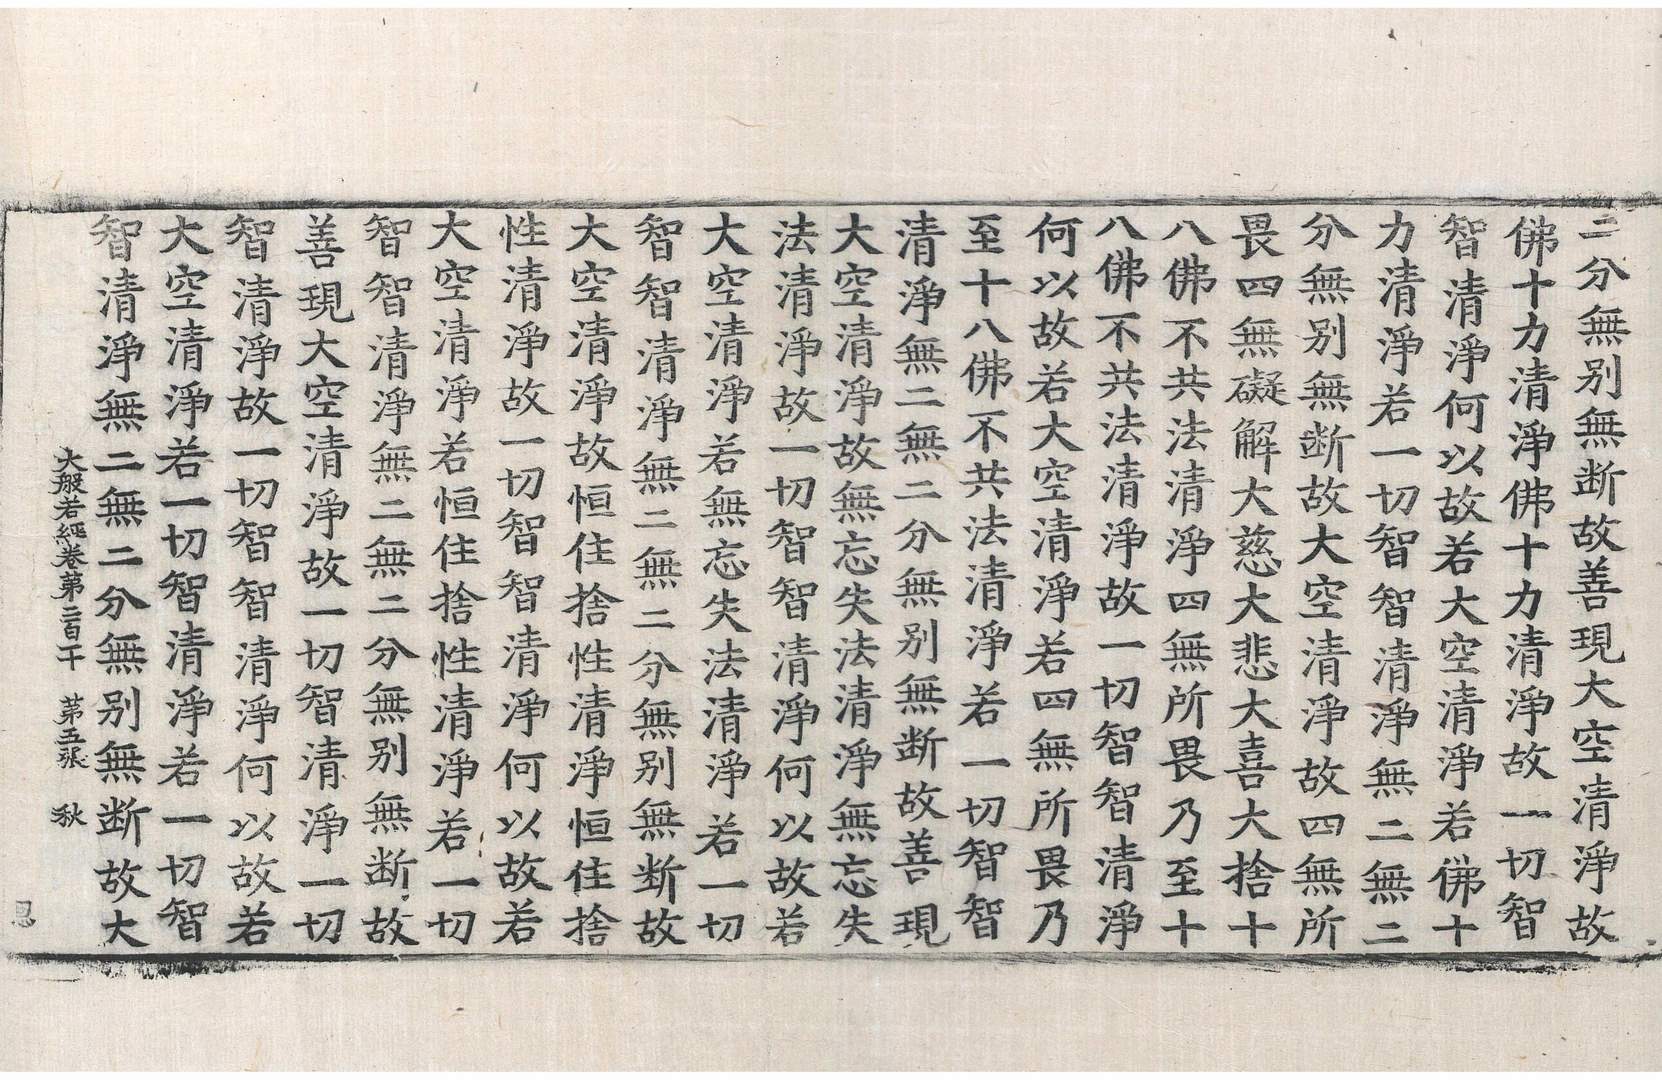 二分無别無断故善現大空清淨故
佛十力清淨佛十力清淨故一切智
智清淨何以故若大空清淨若佛十
力清淨若一切智智清淨無二無二
分無别無断故大空清淨故四無所
畏四無礙解大慈大悲大喜大捨十
八佛不共法清淨四無所畏乃至十
八佛不共法清淨故一切智智清淨
何以故若大空清淨若四無所畏乃
至十八佛不共法清淨若一切智智
清淨無二無二分無别無断故善現
大空清淨故無忘失法清淨無忘失
法清淨故一切智智清淨何以故若
大空清淨若無忘失法清淨若一切
智智清淨無二無二分無别無断故
大空清淨故恒住捨性清淨恒住捨
性清淨故一切智智清淨何以故若
大空清淨若恒住捨性清淨若一切
智智清淨無二無二分無别無断故
善現大空清淨故一切智清淨一切
智清淨故一切智智清淨何以故若
大空清淨若一切智清淨若一切智
智清淨無二無二分無别無断故大
大般若經卷第二百十 第五張 秋